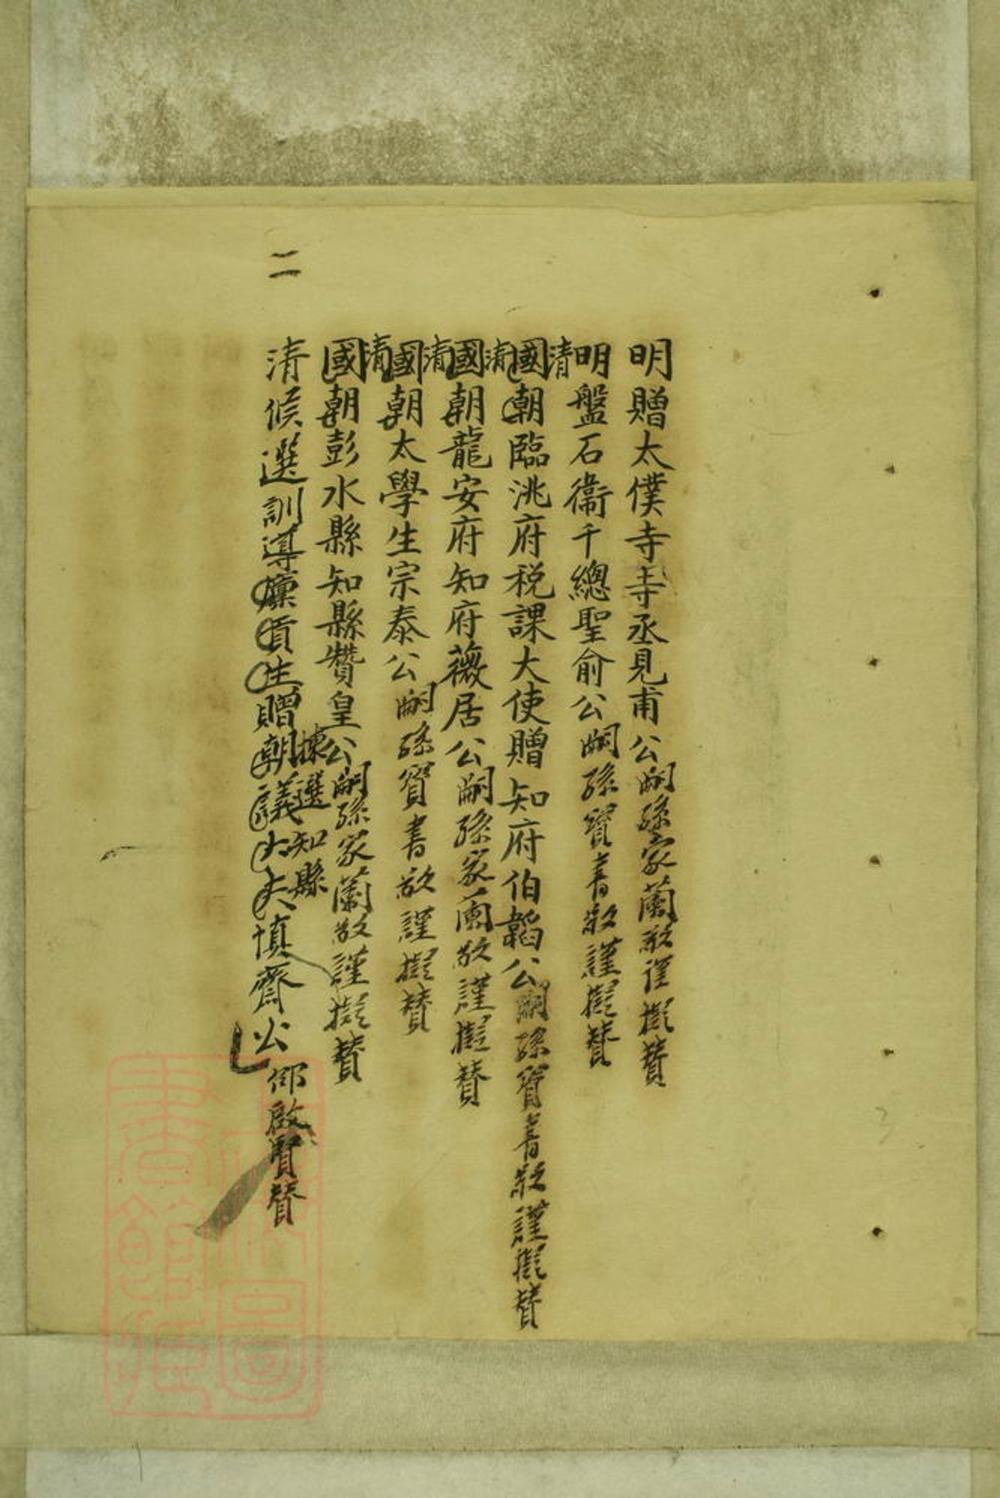 明贈太僕寺寺丞見甫公嗣孫家蘭敬謹擬贊
明盤石衞千總聖俞公嗣孫寶書敬謹擬贊
清國朝臨洮府税課大使贈知府伯韜公嗣孫寶書敬謹擬贊
清國朝龍安府知府薇居公嗣孫家蘭敬謹擬贊
清國朝太學生宗泰公嗣孫寶書敬謹擬贊
清國朝彭水縣知縣贊皇公嗣孫家蘭敬謹擬贊
揀選知縣
清候選訓導廩貢生贈朝議大夫慎齋公邱啟賢贊
二